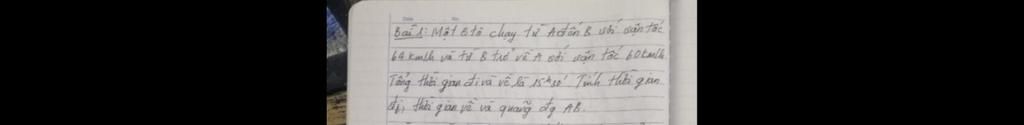 Bài 1: Một ô tô chạy từ A đến B với vận tốc
64 km/h và từ B trở về A với vận tốc 60 km/h
Tổng thời gian đi và về là 15h30'. Tính thời gian
đi, thời gian về và quãng đg AB.